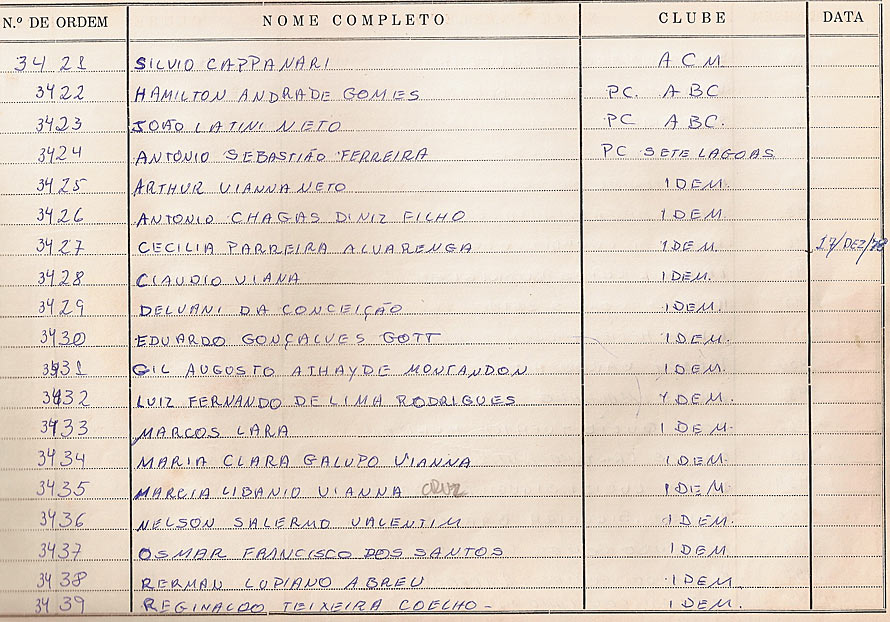 N.º DE ORDEM NOME COMPLETO CLUBE DATA
3421 SILVIO CAPPANARI A C M
3422 HAMILTON ANDRADE GOMES PC. ABC
3423 JOÃO LATINI NETO PC ABC.
3424 ANTONIO SEBASTIÃO FERREIRA PC SETE LAGOAS
3425 ARTHUR VIANNA NETO IDEM.
3426 ANTONIO CHAGAS DINIZ FILHO IDEM.
3427 CECILIA PARREIRA ALVARENGA IDEM. 17/DEZ/78
3428 CLAUDIO VIANA IDEM.
3429 DELVANI DA CONCEIÇÃO IDEM.
3430 EDUARDO GONÇALVES GOTT IDEM.
3431 GIL AUGUSTO ATHAYDE MONTANDON IDEM.
3432 LUIZ FERNANDO DE LIMA RODRIGUES IDEM.
3433 MARCOS LARA IDEM.
3434 MARIA CLARA GALUPO VIANNA IDEM.
3435 MARCIA LIBANIO VIANNA CRUZ IDEM.
3436 NELSON SALERMO VALENTIM IDEM.
3437 OSMAR FRANCISCO DOS SANTOS IDEM
3438 RERMAN LUPIANO ABREU IDEM.
3439 REGINALDO TEIXEIRA COELHO - IDEM.